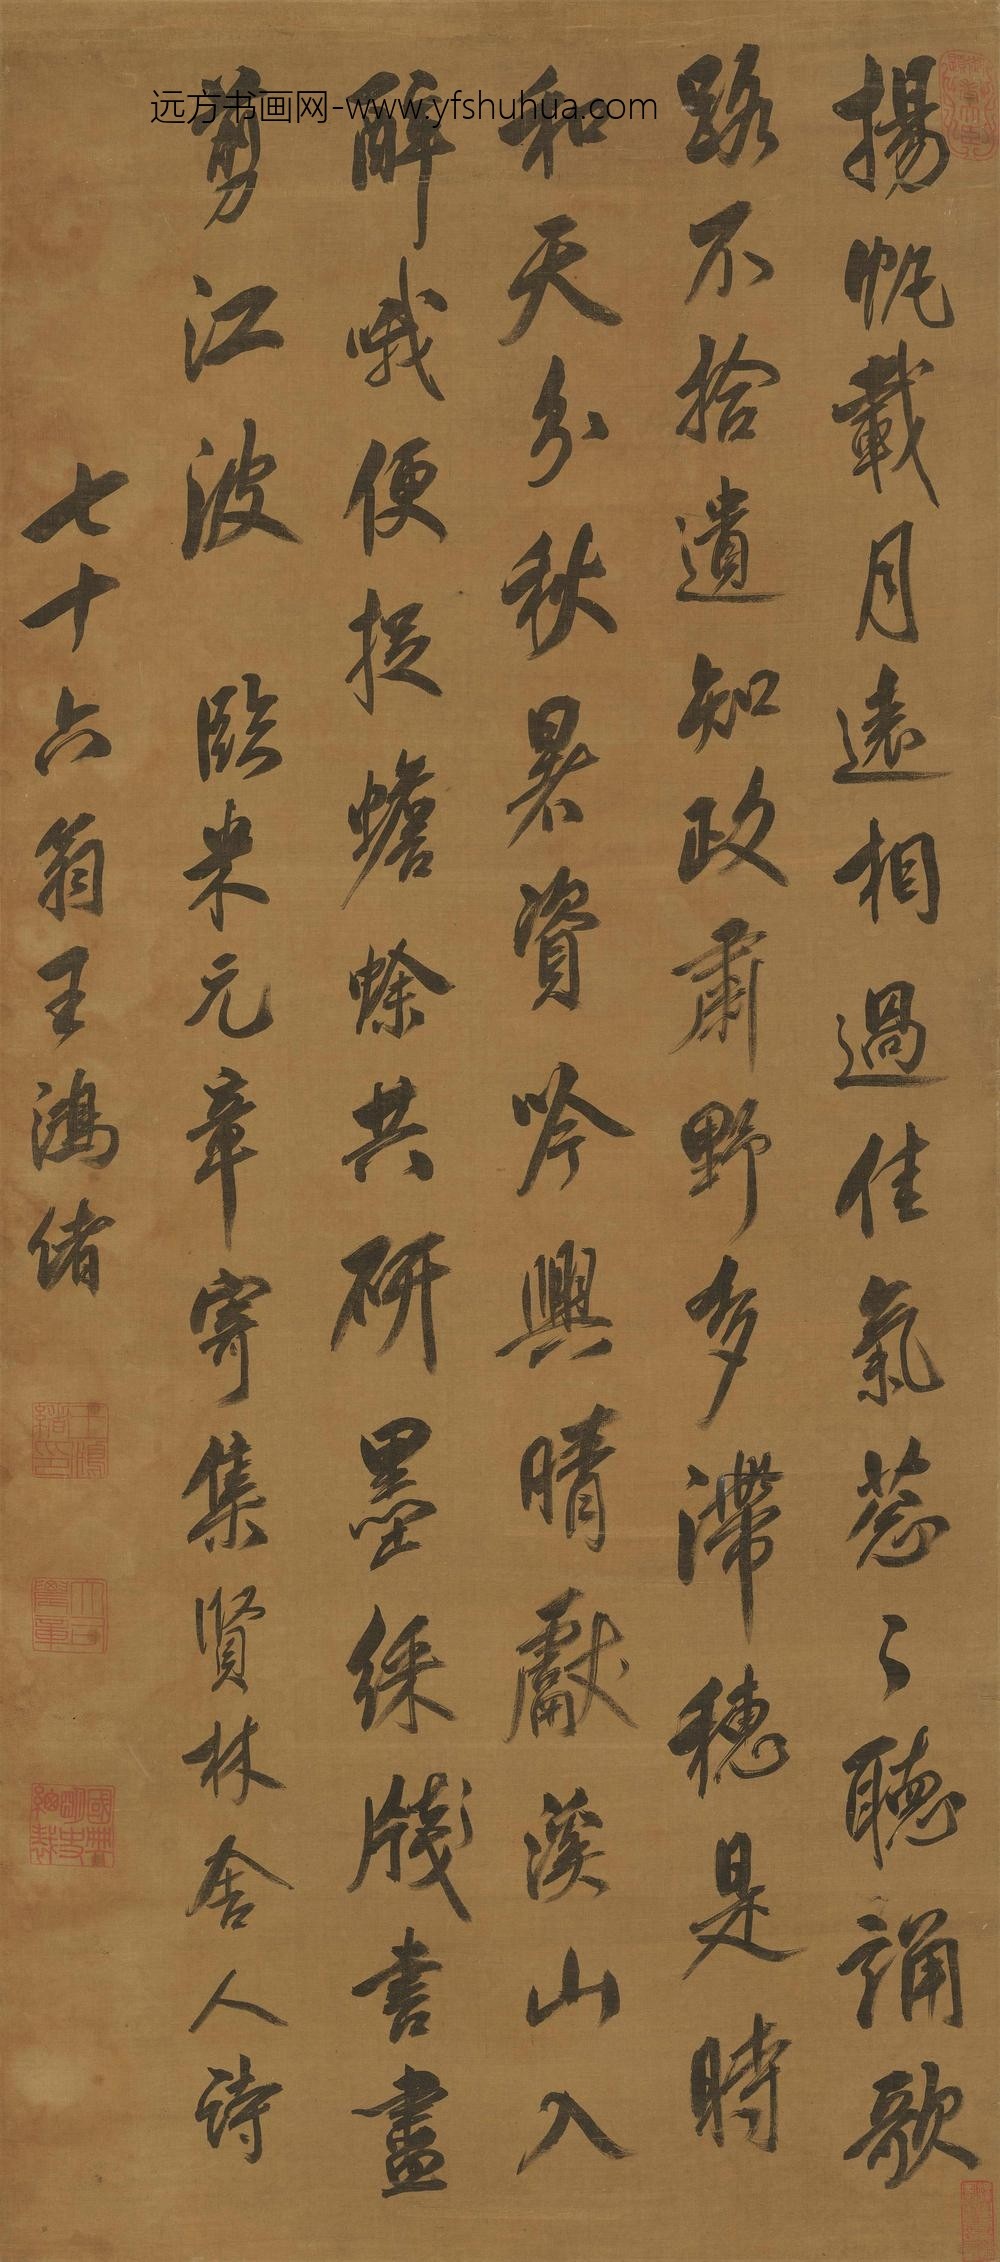 揚帆載月遠相過佳氣蔥々聽誦歌
路不拾遺知政肅野多滯穗是時
和天分秋暑資吟興晴獻溪山入
醉哦便捉蟾蜍共研墨綵牋書盡
剪江波 臨米元章寄集賢林舍人詩
七十六翁王鴻緒
王鴻緒印
國典明史紬裁
远方书画网-www.yfshuhua.com